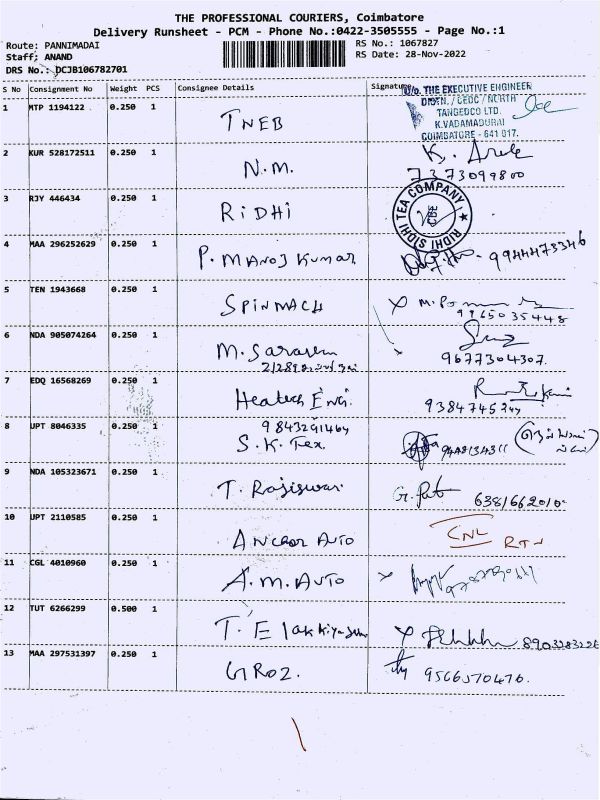 THE PROFESSIONAL COURIERS, Coimbatore
Delivery Runsheet - PCM - Phone No.:0422-3505555 - Page No.:1
Route: PANNIMADAI
RS No.: 1067827
Staff: ANAND
RS Date: 28-Nov-2022
DRS No.: DCJB106782701
S No Consignment No Weight PCS Consignee Details Signature
O/o. THE EXECUTIVE ENGINEER
DISTN./ CEDC / NORTH
TANGEDCO LTD.
K.VADAMADURAI
COIMBATORE - 641 017.
1 MTP 1194122 0.250 1 TNEB
2 KUR 528172511 0.250 1 N.M.
7373099800
3 RJY 446434 0.250 1 RIDHI
RIDHI SIDHI TEA COMPANY ★ CBE
4 MAA 296252629 0.250 1 P. MANOJ Kumar 9944473346
5 TEN 1943668 0.250 1 SPINMACH
9965035448
6 NDA 905074264 0.250 1 M. Saraswathi
9677304307.
7 EDQ 16568269 0.250 1 Heatech Engi.
8 UPT 8046335 0.250 1 9843291464
S.K. Tex
9 NDA 105323671 0.250 1 T. Rajiswari 6381662010
10 UPT 2110585 0.250 1 ANCHOR AUTO CNL RTN
11 CGL 4010960 0.250 1 A.M. AUTO
12 TUT 6266299 0.500 1
13 MAA 297531397 0.250 1 GROZ. 9566570476.